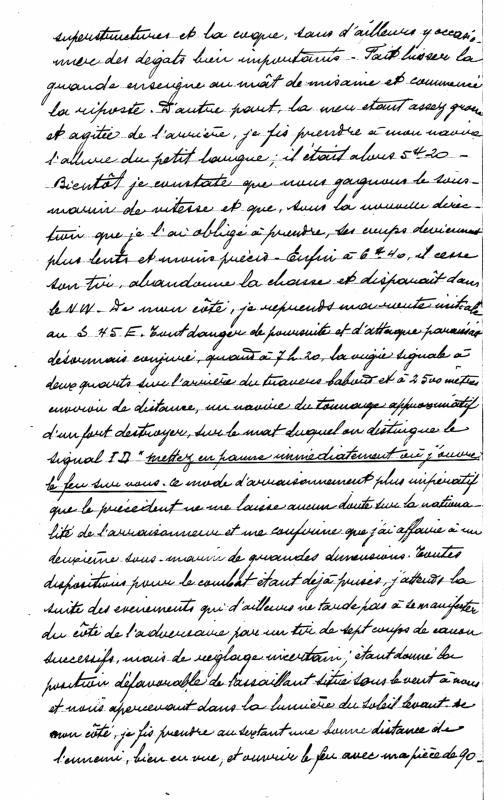 superstructures et la coque, sans d'ailleurs y occasio-
nner des dégats bien importants - Fait hisser la
grande enseigne au mât de misaine et commencé
la riposte. D'autre part, la mer étant assez grosse
et agitée de l'arrière, je fis prendre à mon navire
l'allure du petit largue; il était alors 5h20 -
Bientôt je constate que nous gagnons le sous-
marin de vitesse et que, sous la nouvelle direc-
tion que je l'ai obligé à prendre, ses coups deviennent
plus lents et moins précis - Enfin à 6h40, il cesse
son tir, abandonne la chasse et disparait dans
le NW - De mon côté, je reprends ma route initiale
au S 45 E. Tout danger de poursuite et d'attaque paraissait
désormais conjuré, quand à 7h.20, la vigie signale à
deux quarts sur l'arrière du travers babord et à 2500 mètres
environ de distance, un navire du tonnage approximatif
d'un fort destroyer, sur le mat duquel on distingue le
signal I D "mettez en panne immédiatement où j'ouvre
le feu sur vous. Ce mode d'arraisonnement plus impératif
que le précédent ne me laisse aucun doute sur la nationa-
lité de l'arraisonneur et me confirme que j'ai affaire à un
deuxième sous-marin de grandes dimensions. Toutes
dispositions pour le combat étant déjà prises, j'attends la
suite des evénements qui d'ailleurs ne tarde pas à se manifester
du côté de l'adversaire par un tir de sept coups de canon
successifs, mais de réglage incertain; étant donné la
position défavorable de l'assaillant situé sous le vent à nous
et nous apercevant dans la lumière du soleil levant. De
mon côté, je fis prendre au sextant une bonne distance de
l'ennemi, bien en vue, et ouvrir le feu avec ma pièce de 90 -